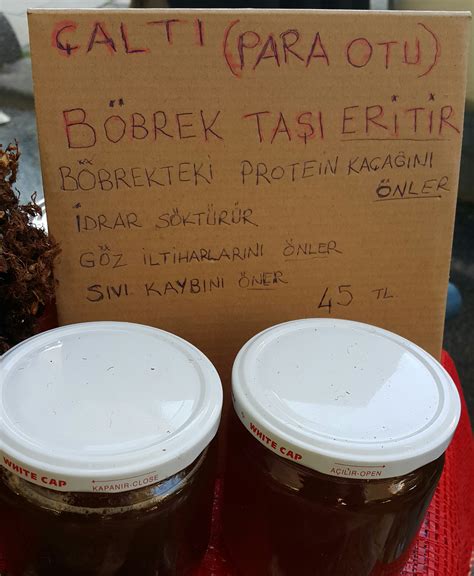 ÇALTI (PARA OTU)
BÖBREK TAŞI ERİTİR
BÖBREKTEKİ PROTEİN KAÇAĞINI
ÖNLER
İDRAR SÖKTÜRÜR
GÖZ İLTİHARLARINI ÖNLER
SIVI KAYBINI ÖNER
45 TL.
WHITE CAP
KAPANIR-CLOSE
WHITE CAP
AÇILIR-OPEN